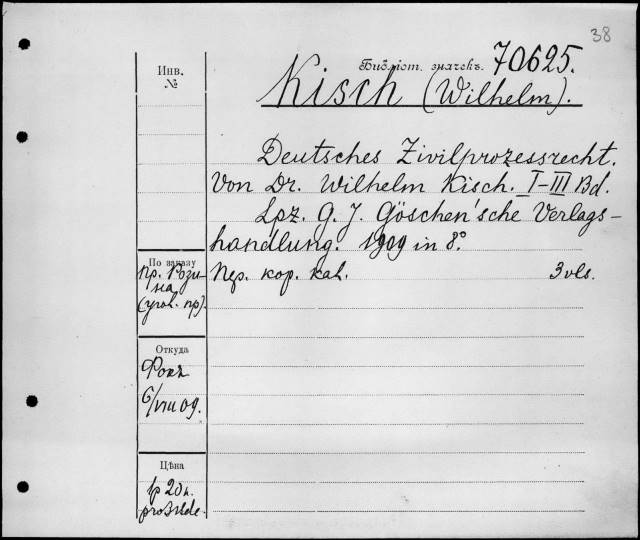 38
Библіот. значекъ. 70625.
Инв.
№
Kisch (Wilhelm).
Deutsches Zivilprozessrecht.
Von Dr. Wilhelm Kisch. I-III Bd.
Lpz. G. J. Göschen'sche Verlags-
handlung. 1909 in 8°
По заказу
пр. Рози-
на
(угол. пр).
Пер. кор. кал.
3 vls.
Откуда
Фокъ
6/VIII 09.
Цѣна
1р 20к.